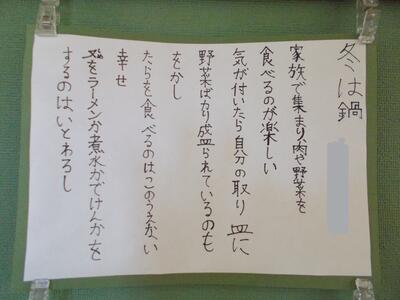 冬は鍋
家族で集まり、肉や野菜を
食べるのが楽しい
気が付いたら自分の取り皿に
野菜ばかり盛られているのも
をかし
たらを食べるのはこのうえない
幸せ
〆をラーメンか煮水かでけんかを
するのはいとわるし